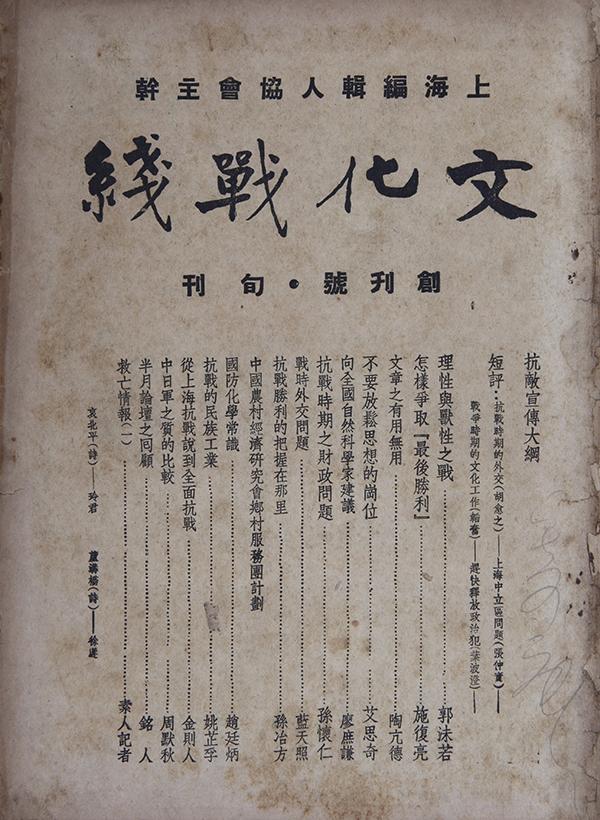 上海編輯人協會主幹
文化戰綫
創刊號・旬刊
抗敵宣傳大綱
短評：抗戰時期的外交(胡愈之)——上海中立區問題(張仲實)——
戰爭時期的文化工作(韜奮)——趕快釋放政治犯(葉波澄)——
理性與獸性之戰……郭沫若
怎樣爭取「最後勝利」……施復亮
文章之有用無用……陶亢德
不要放鬆思想的崗位……艾思奇
向全國自然科學家建議……廖庶謙
抗戰時期之財政問題……孫懷仁
戰時外交問題……藍天照
抗戰勝利的把握在那里……孫冶方
中國農村經濟研究會鄉村服務團計劃
國防化學常識……趙廷炳
抗戰的民族工業……姚芷孚
從上海抗戰說到全面抗戰……金則人
中日軍之質的比較……周默秋
半月論壇之回顧……銘人
救亡情報(一)……素人記者
哀北平(詩)——玲君
蘆溝橋(詩)——徐遲